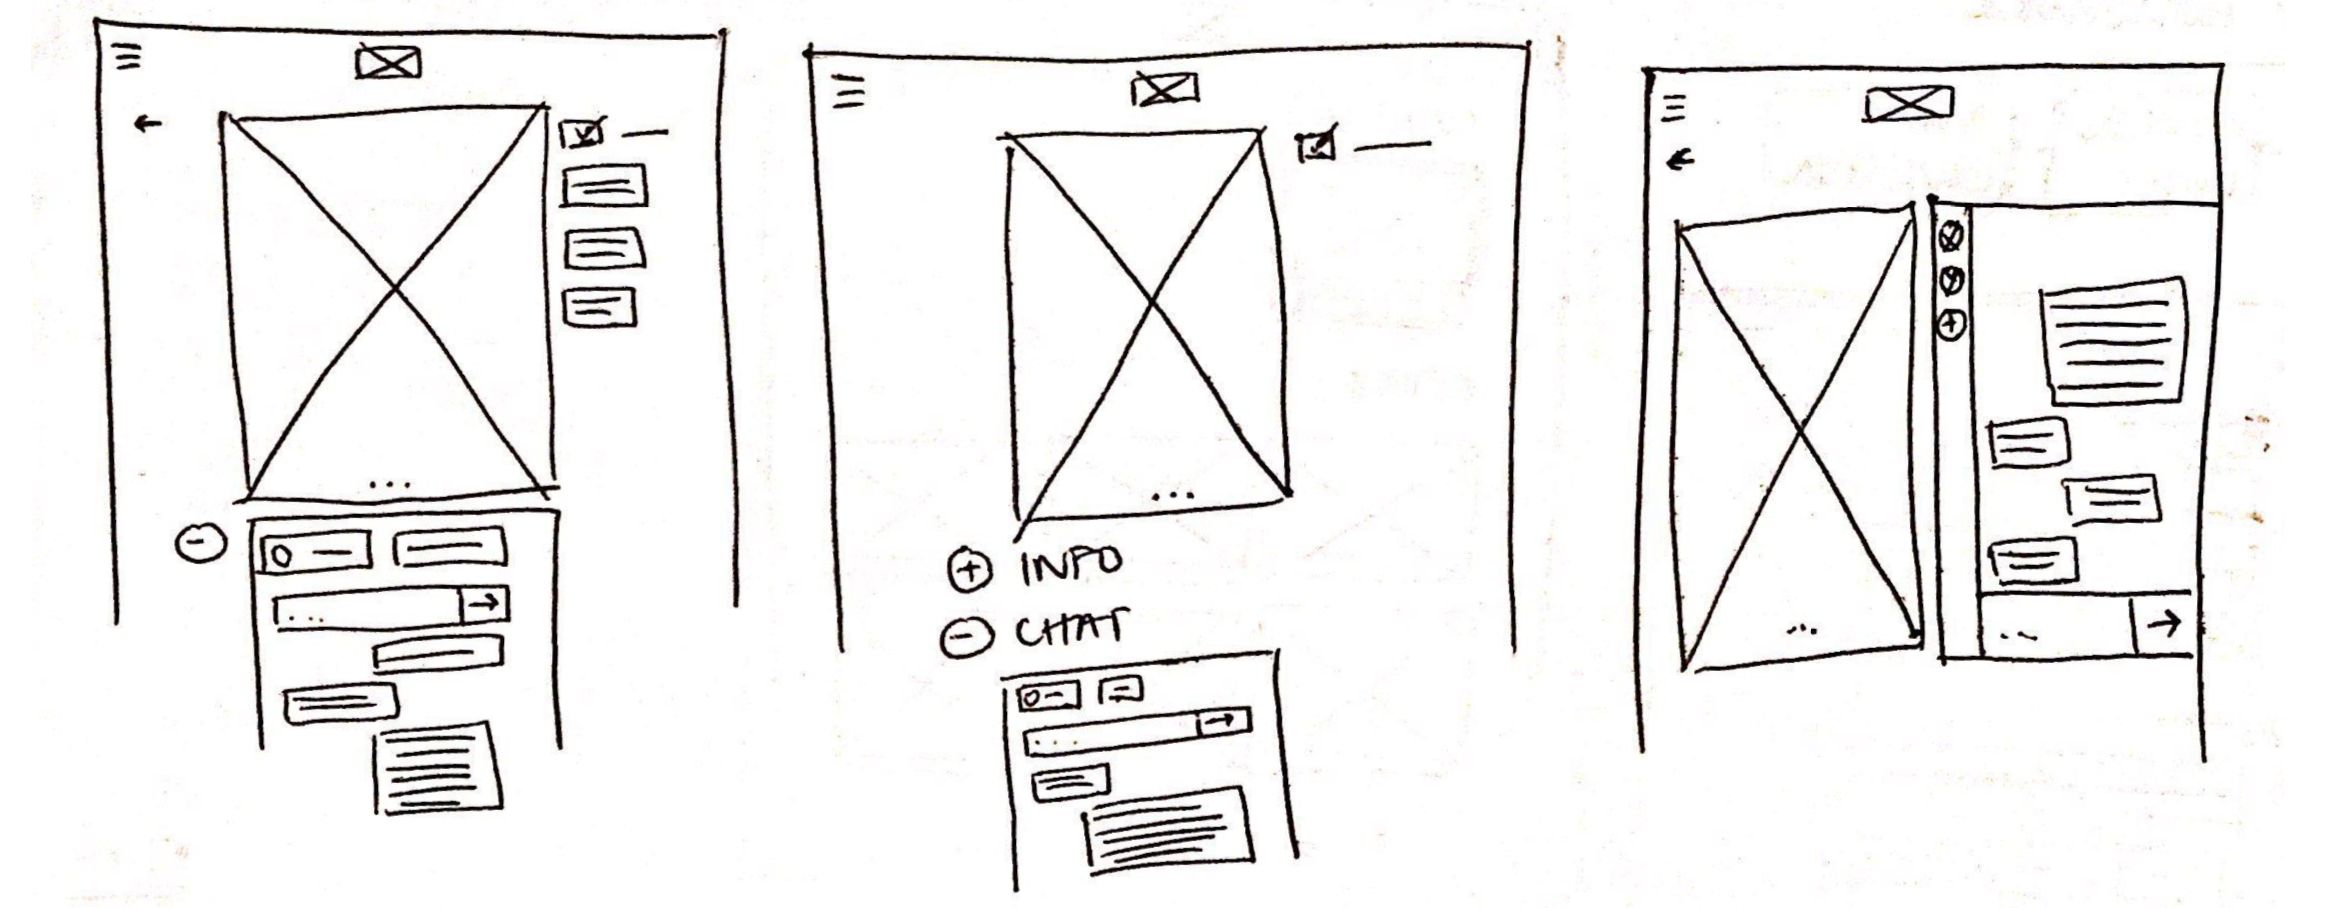 INFO
CHAT